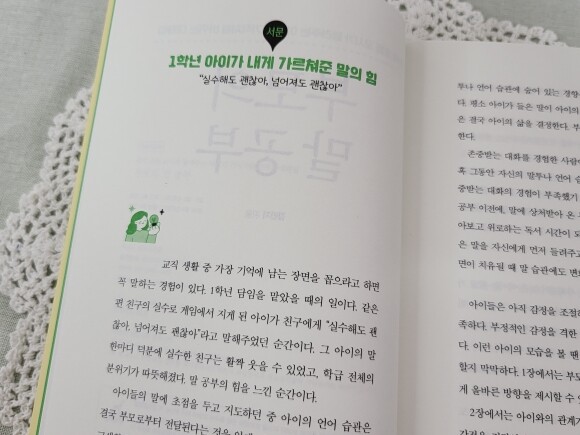 서문
1학년 아이가 내게 가르쳐준 말의 힘
"실수해도 괜찮아, 넘어져도 괜찮아"
교직 생활 중 가장 기억에 남는 장면을 꼽으라고 하면
꼭 말하는 경험이 있다. 1학년 담임을 맡았을 때의 일이다. 같은
편 친구의 실수로 게임에서 지게 된 아이가 친구에게 "실수해도 괜
찮아. 넘어져도 괜찮아"라고 말해주었던 순간이다. 그 아이의 말
한마디 덕분에 실수한 친구는 활짝 웃을 수 있었고, 학급 전체의
분위기가 따뜻해졌다. 말 공부의 힘을 느낀 순간이다.
아이들의 말에 초점을 두고 지도하던 중 아이의 언어 습관은
결국 부모로부터 전달된다는 것을
투나 언어 습관에 숨어 있는 경향
다. 평소 아이가 듣는 말이 아이의
은 결국 아이의 삶을 결정한다. 부
한다.
존중받는 대화를 경험한 사람
혹 그동안 자신의 말투나 언어 습
중받는 대화의 경험이 부족했기
공부 이전에, 말에 상처받아 온
아보고 위로하는 독서 시간이 되
은 말을 자신에게 먼저 들려주고
면이 치유될 때 말 습관에도 변
아이들은 아직 감정을 조절하
족하다. 부정적인 감정을 격한
다. 이런 아이의 모습을 볼 땐
할지 막막하다. 1장에서는 부모
게 올바른 방향을 제시할 수 있
2장에서는 아이와의 관계가